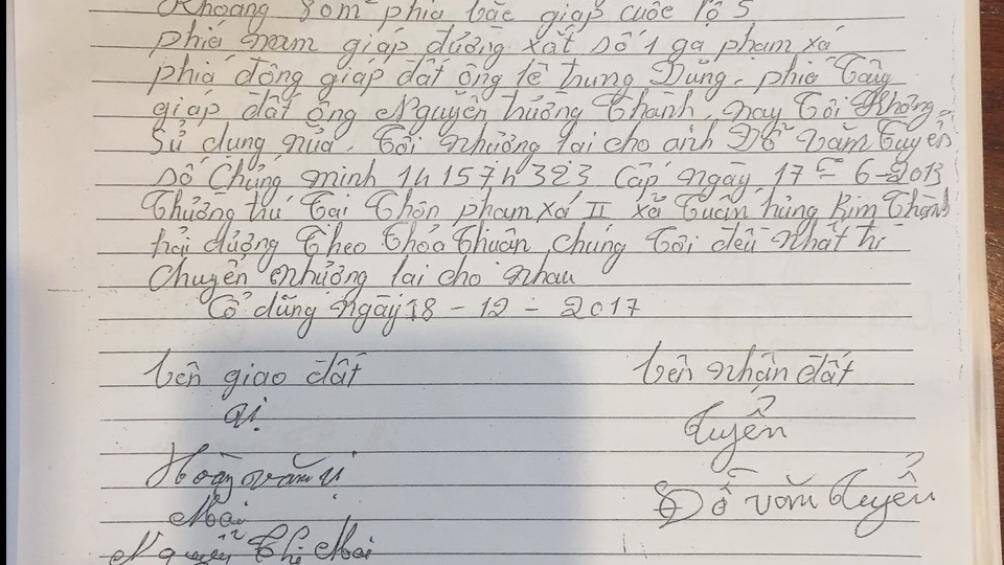 Khoảng 80m² phía bắc giáp cuốc lộ 5
phiá nam giáp đường xắt số 1 ga phạm xá
phiá đông giáp đất ông lê trung Dũng. phiá tây
giáp đất ông Nguyễn hường thành, nay tôi không
sử dụng nữa. tôi nhường lại cho anh Đỗ văn tuyển
số chứng minh 141574323 cấp ngày 17 - 6-2013
thường thú tại thôn phạm xá II xã tuấn hưng kim thành
hải dương theo thỏa thuận chúng tôi đều nhất trí
chuyển nhường lại cho nhau
cổ dũng ngày 18 - 12 - 2017
bên giao đất
bên nhận đất
tuyển
Hoàng văn
Đỗ văn tuyển
Mai
Nguyễn thị Mai